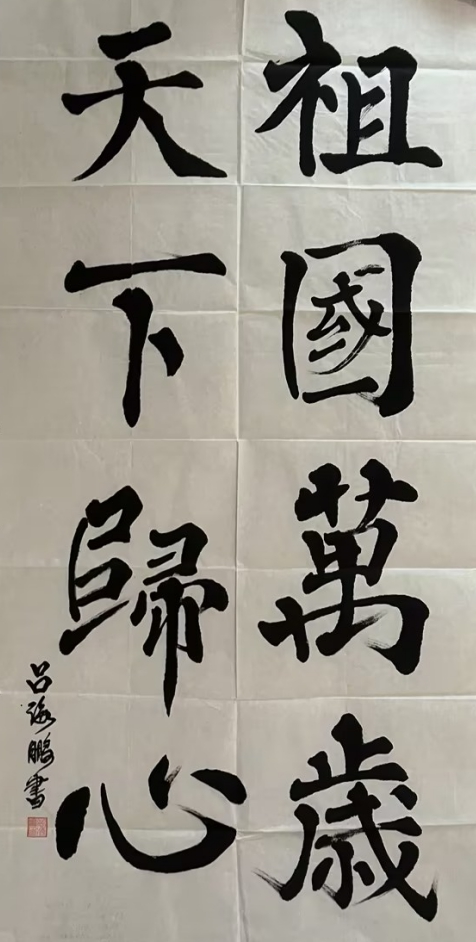 祖國萬歲
天下歸心
吕海鹏書